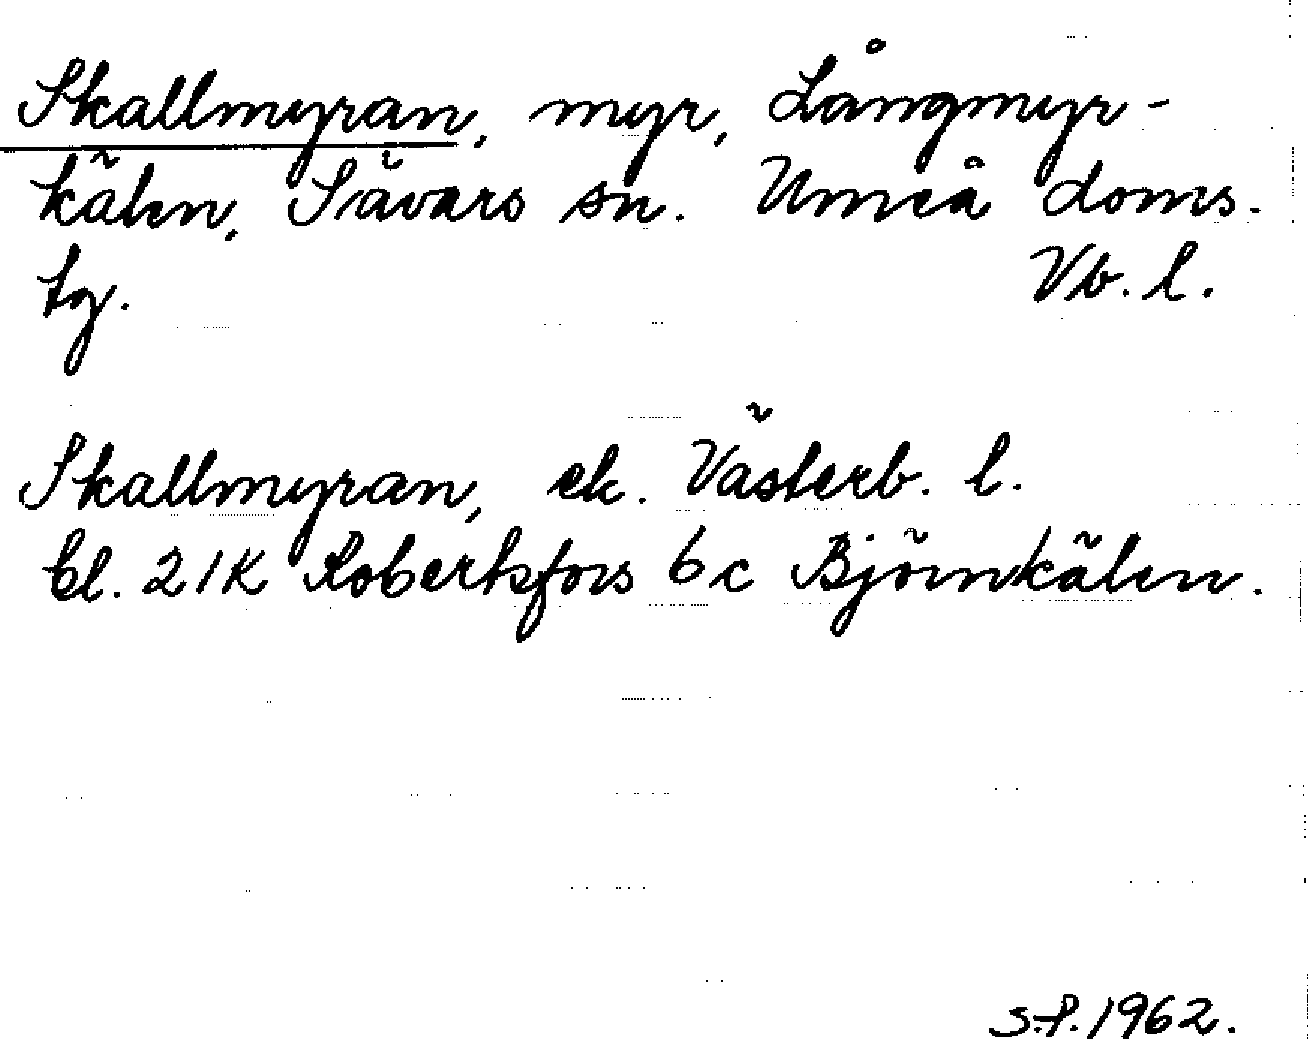 Skallmyran, myr, Långmyr-
kälen, Sävars sn. Umeå doms.
tg. Vb. l.
Skallmyran, ek. Västerb. l.
bl. 21K Robertsfors 6c Björnkälen.
S.F. 1962.